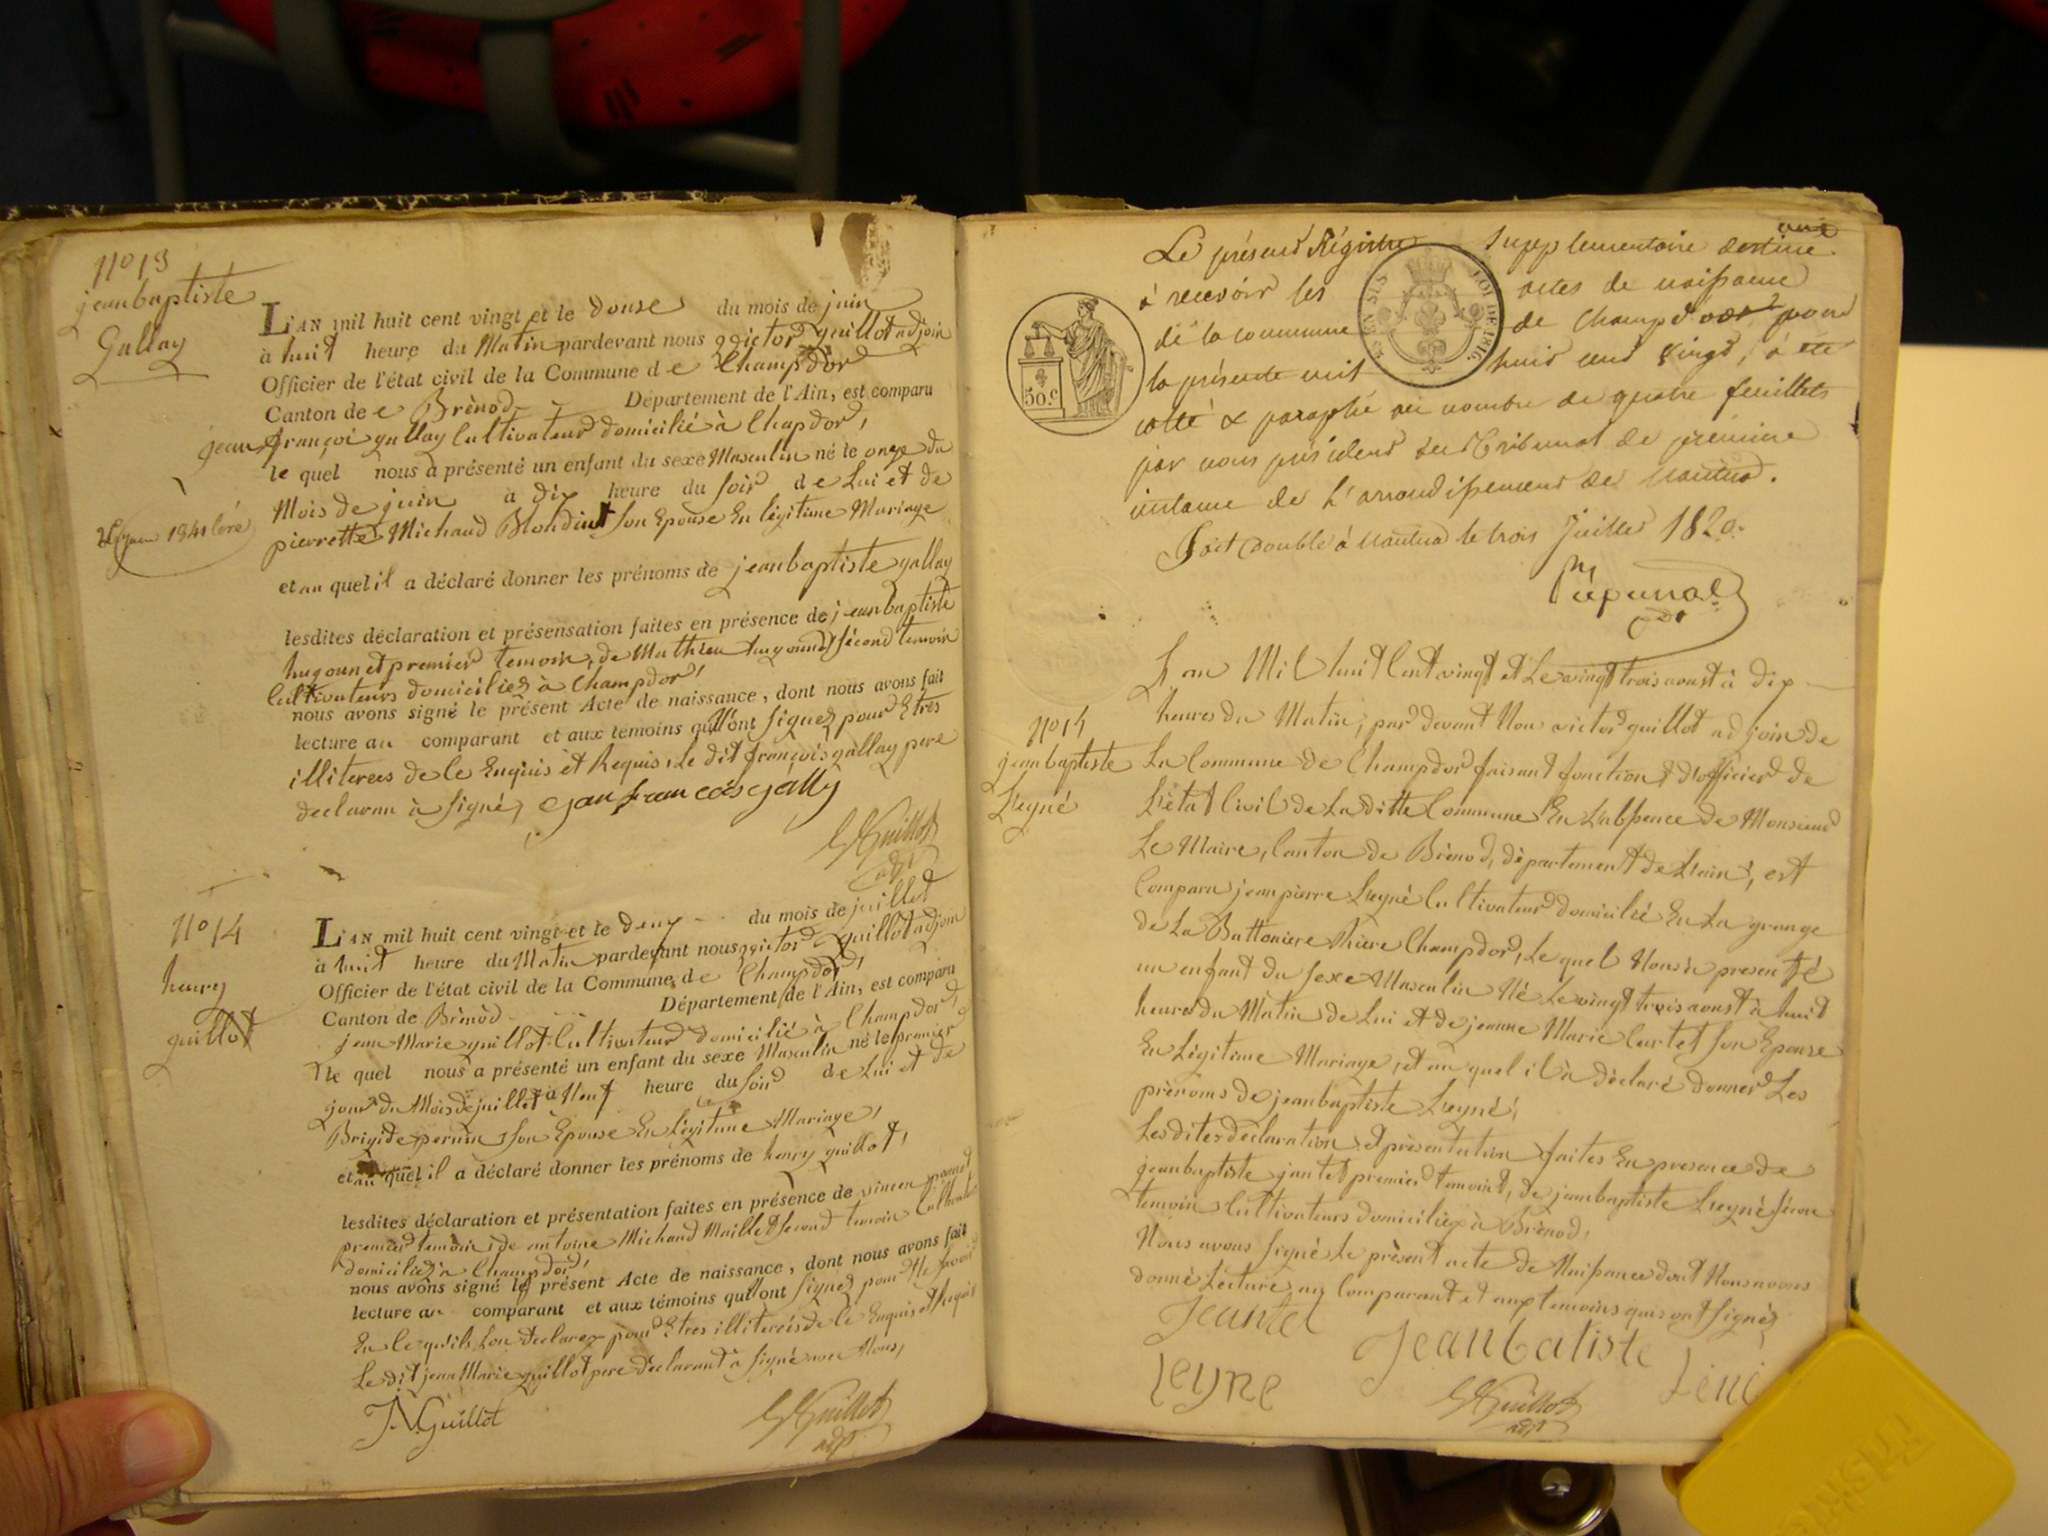 N° 13
jeanbaptiste
Gallay
L'AN mil huit cent vingt et le douse du mois de juin
à huit heure du Matin pardevant nous victor guillot adjoin
Officier de l'état civil de la Commune de Champdor
Canton de Brénod Département de l'Ain, est comparu
jean françoi gallay Cultivateur domicilié à Chapdor,
le quel nous a présenté un enfant du sexe Masculin né le onze du
Mois de juin à dix heure du soir de Lui et de
pierrette Michaud Blondin son Epouse En légitime Mariage
1841
et au quel il a déclaré donner les prénoms de jeanbaptiste gallay
lesdites déclaration et présensation faites en présence de jeanbaptiste
hugounet premier temoin, de Mathieu hugounet second temoin
Cultivateurs domiciliés à Champdor,
nous avons signé le présent Acte de naissance, dont nous avons fait
lecture au comparant et aux témoins qui n'ont signez pour Etres
illiterees de ce Enquis et Requis, Le dit françois gallay pere
declaran à signé, jean francois gally
Guillot
adj
N° 14
henry
guillot
L'AN mil huit cent vingt et le deux du mois de juillet
à huit heure du Matin pardevant nous victor guillot adjoin
Officier de l'état civil de la Commune de Champdor,
Canton de Brénod Département de l'Ain, est comparu
jean Marie guillot Cultivateur domicilié à Champdor
le quel nous a présenté un enfant du sexe Masculin né le premier
jour du Mois de juillet à Neuf heure du soir de Lui et de
Brigide perrin son Epouse En Légitime Mariage,
et au quel il a déclaré donner les prénoms de henry guillot,
lesdites déclaration et présentation faites en présence de vincen
premier temoin, de antoine Michaud Maillet second temoin Cultivateurs
domiciliés à Champdor,
nous avons signé le présent Acte de naissance, dont nous avons fait
lecture au comparant et aux témoins qui n'ont signez pour Ne savoir
En ce qu'ils Lon declarez pour Etres illiterés de ce Enquis et Requis
Le dit jean Marie guillot pere déclarant à signé avec Nous,
J.M. Guillot
Guillot
adj
une
Le présent Régistre Supplementaire destiné
à recevoir les actes de naissance
de la commune de Champd'or pour
la présente mil huit cent vingt, a été
cotté & paraphé au nombre de quatre feuillets
par nous président du Tribunal de première
instance de L'arrondissement de Nantua.
Fait Double à Nantua le trois Juillet 1820.
50.c
LOI DE 1816.
N° 14
jeanbaptiste
Leyné
L'an Mil huit Cent vingt et Le vingt trois aoust à dix
heures du Matin, par devant Nou victor guillot adjoin de
La Commune de Champdor faisant fonction d'officier de
L'état Civil de La ditte Commune En L'abssence de Monsieur
Le Maire, Canton de Brénod, département de L'ain, est
Comparu jean pierre Leyné Cultivateur domicilié En La grange
de La Battoniere Champdor, Le quel Nous à presenté
un enfant du sexe Masculin Né Le vingt trois aoust à huit
heures du Matin de Lui et de jeanne Marie Curtet son Epouse
En Légitime Mariage, et au quel il à déclaré donner Les
prénoms de jeanbaptiste Leyné,
Les dites declaration et présentation faites En presence de
jeanbaptiste jantet premier temoint, de jeanbaptiste Leyné secon
temoin Cultivateurs domiciliez à Brénod,
Nous avons signé Le présent acte de Naissance dont Nous avons
donné Lecture au Comparant et aux temoins qui ont signés
Jeantet Jeanbatiste
leyne Léné
Guillot
adj